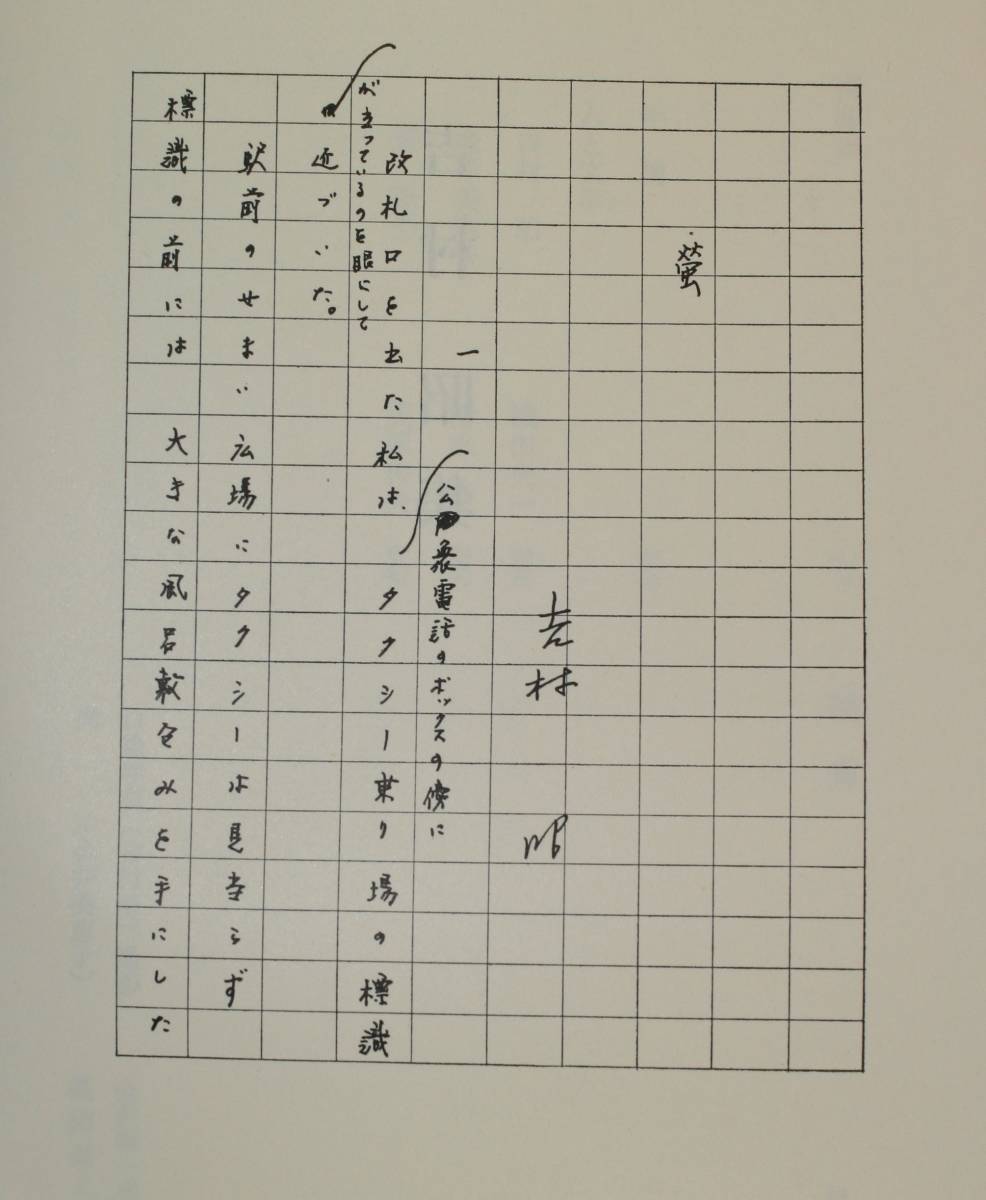 螢
吉村 昭
一
改札口を出た私は、公衆電話のボックスの傍にタクシー乗り場の標識
が立っているのを眼にして
近づいた。
駅前のせまい広場にタクシーは見当らず
標識の前には、大きな風呂敷包みを手にした